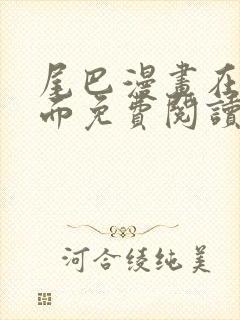 尾巴漫畫在
而免費閱讀
河合綾純美